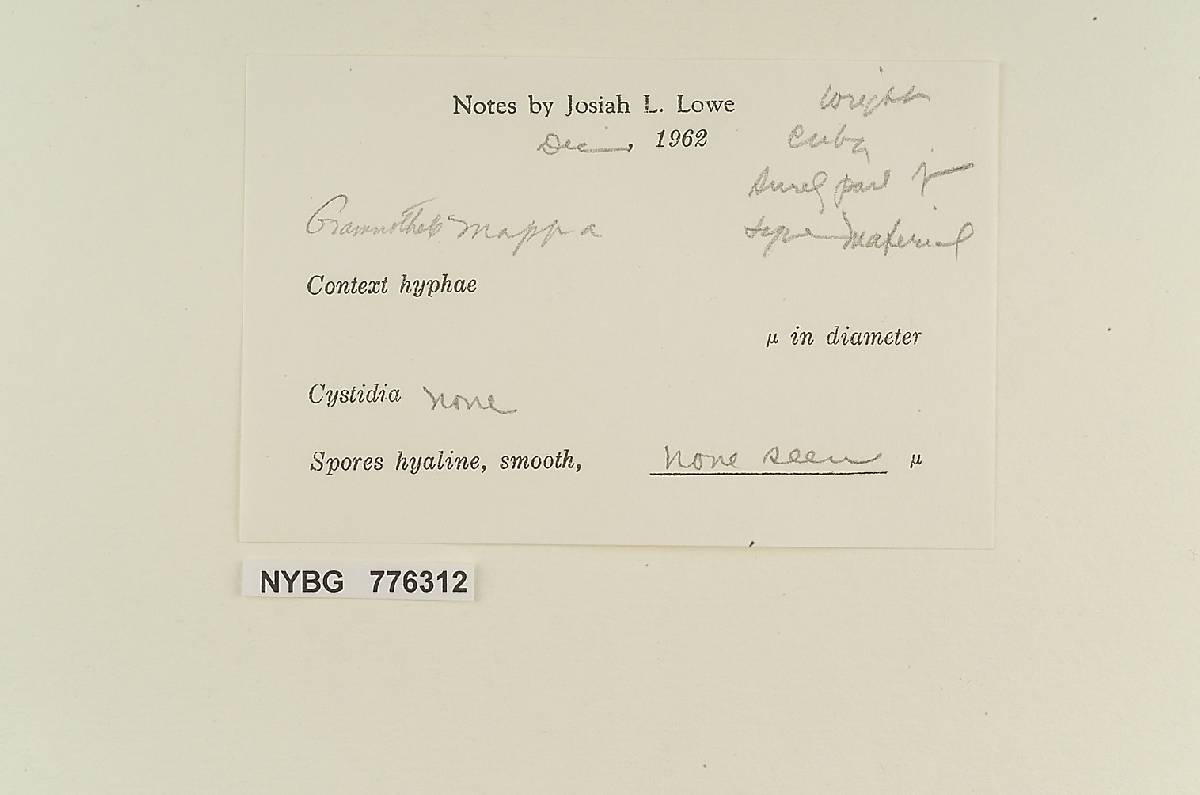 Notes by Josiah L. Lowe
Dec , 1962
Wright
Cuba
Surely part of
type material
Grammothele mappa
Context hyphae
μ in diameter
Cystidia none
Spores hyaline, smooth, none seen μ
NYBG 776312